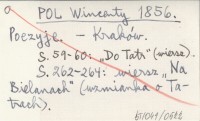 POL Wincenty 1856.
Poezyje. - Kraków.
S. 59-60: "Do Tatr" (wiersz).
S. 262-264: wiersz "Na
Bielanach" (wzmianka o Ta-
trach).